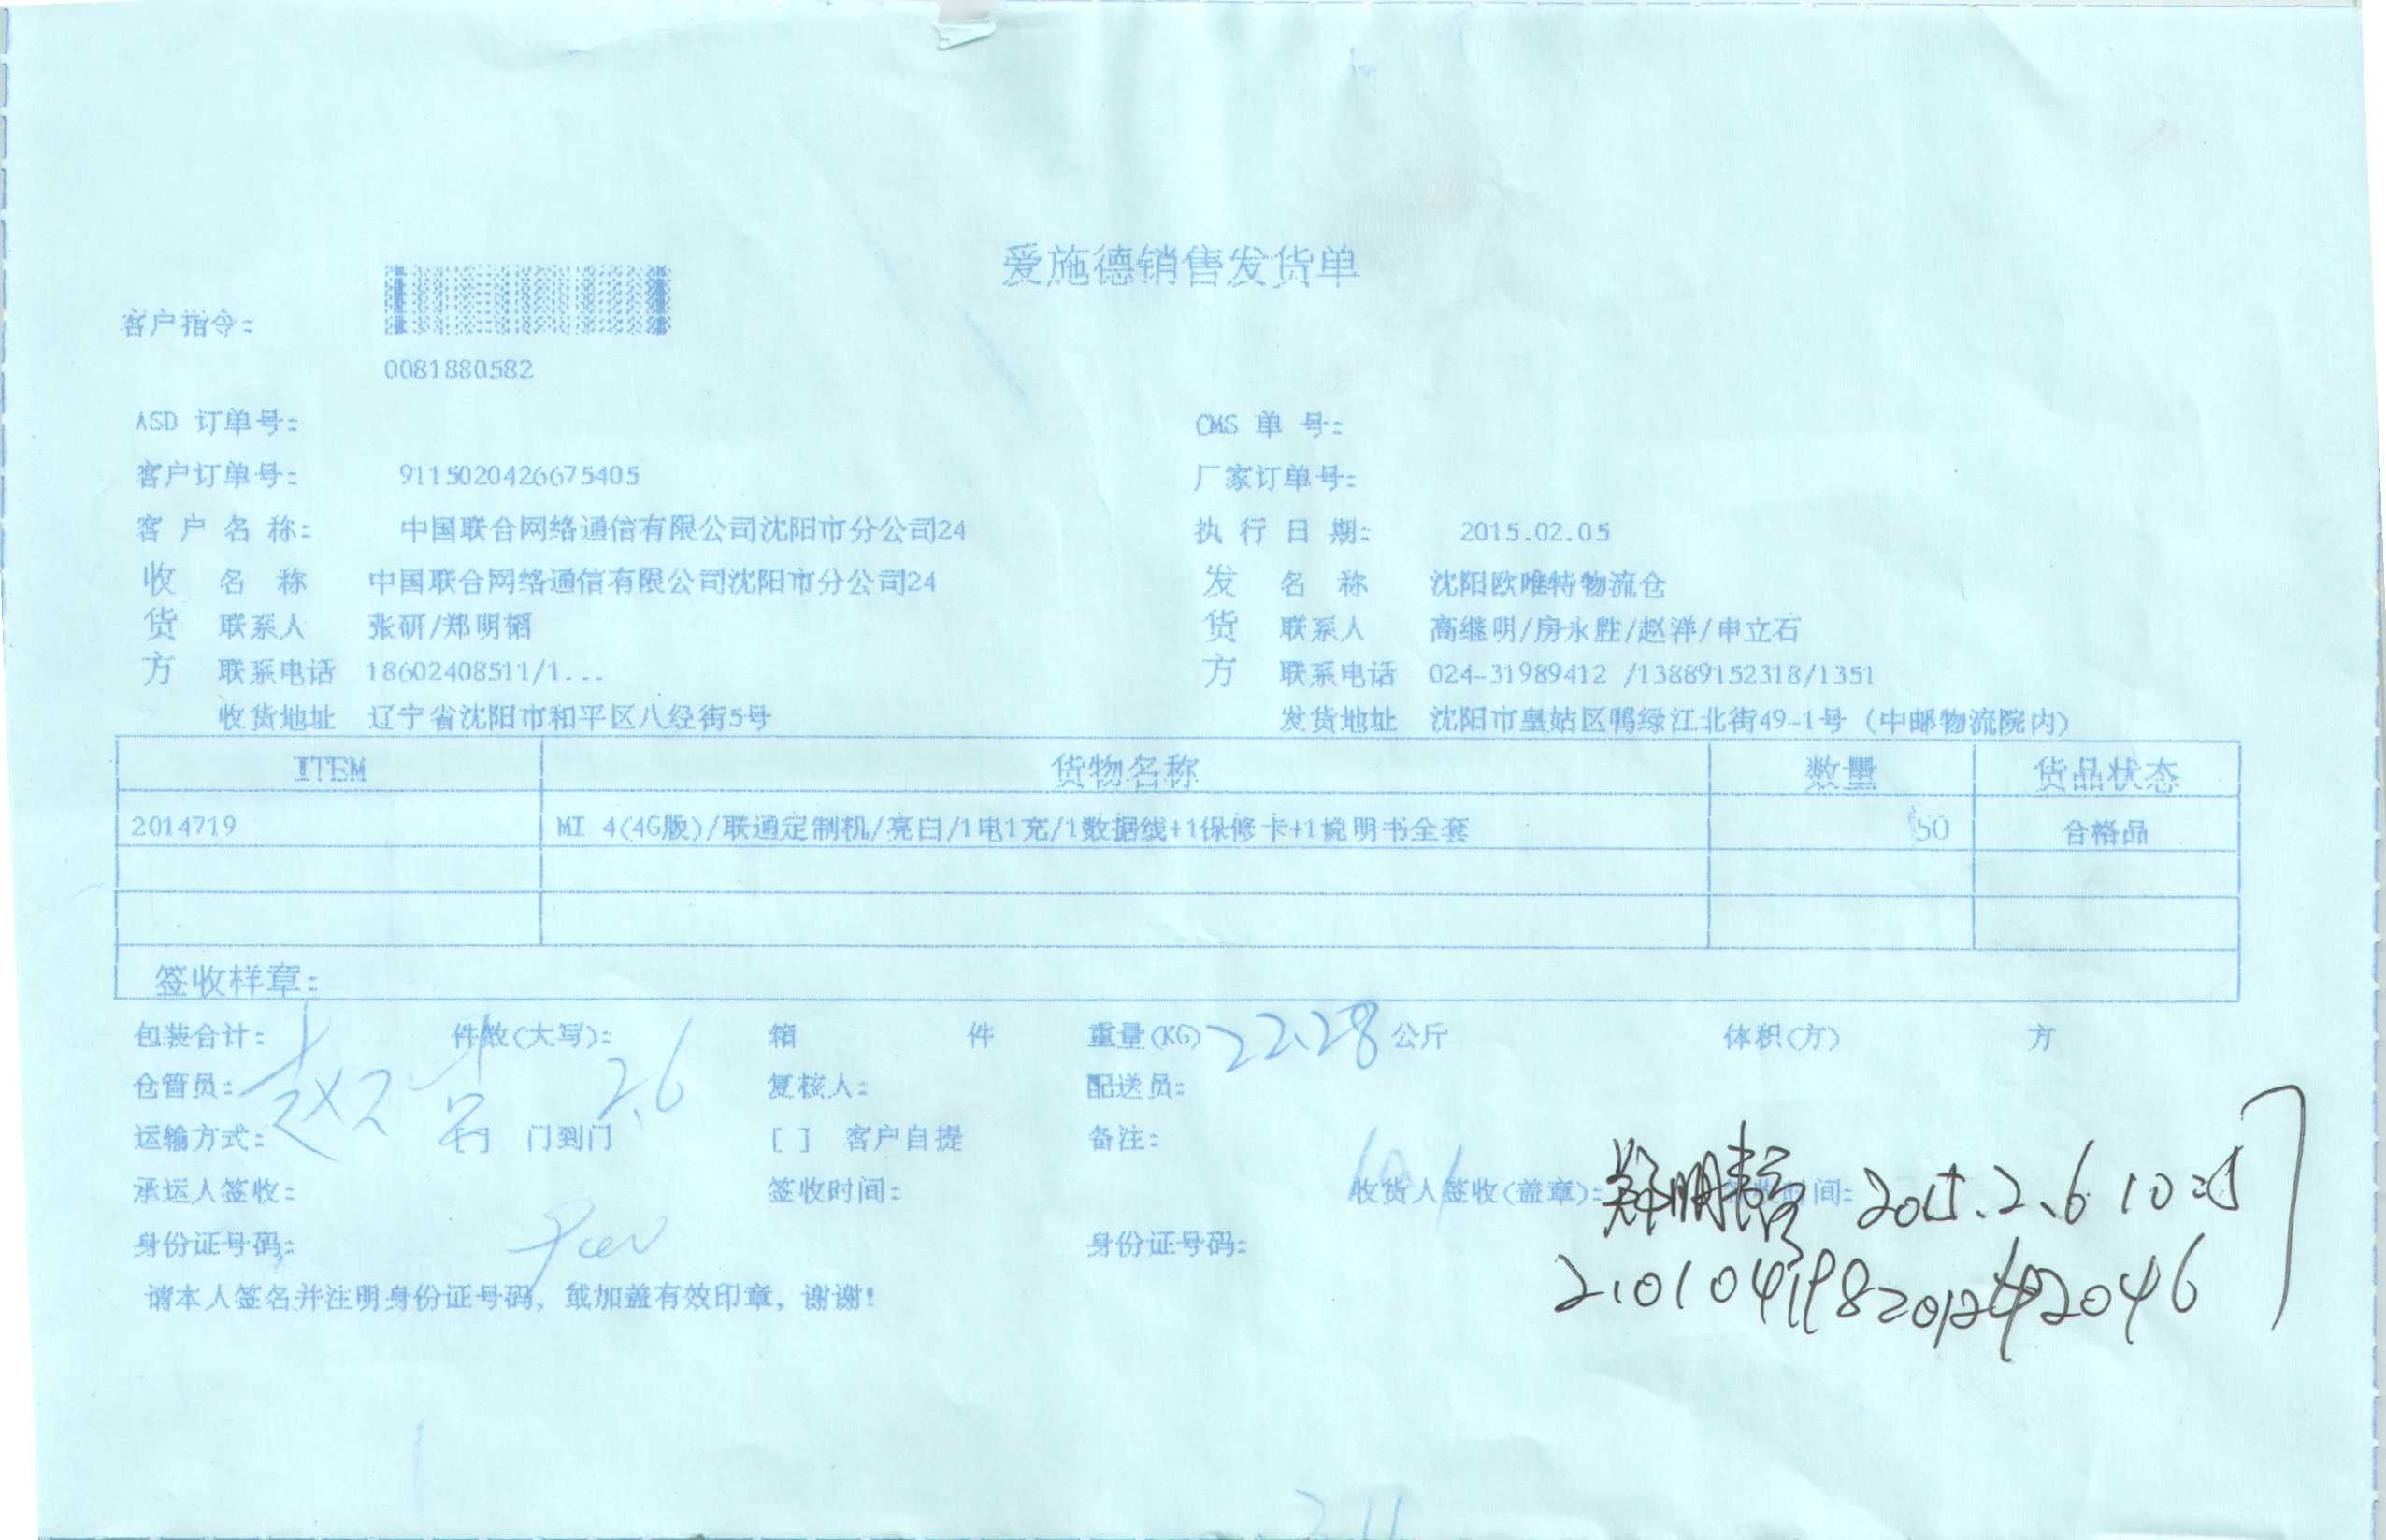 爱施德销售发货单
客户指令:
0081880582
ASD 订单号: CMS 单 号:
客户订单号: 9115020426675405 厂家订单号:
客 户 名 称: 中国联合网络通信有限公司沈阳市分公司24 执 行 日 期: 2015.02.05
收 名 称 中国联合网络通信有限公司沈阳市分公司24 发 名 称 沈阳欧唯特物流仓
货 联系人 张研/郑明韬 货 联系人 高继明/房永胜/赵洋/申立石
方 联系电话 18602408511/1... 方 联系电话 024-31989412 /13889152318/1351
收货地址 辽宁省沈阳市和平区八经街5号 发货地址 沈阳市皇姑区鸭绿江北街49-1号 (中邮物流院内)
ITEM 货物名称 数量 货品状态
2014719 MI 4(4G版)/联通定制机/亮白/1电1充/1数据线+1保修卡+1说明书全套 50 合格品
签收样章:
包装合计: 件数(大写): 箱 件 重量(KG) 22.28 公斤 体积(方) 方
仓管员: 2.6 复核人: 配送员:
运输方式: 门到门 [ ] 客户自提 备注:
承运人签收: 签收时间: 收货人签收(盖章): 郑明韬 间: 2015.2.6 10:
身份证号码: 身份证号码:
请本人签名并注明身份证号码, 或加盖有效印章, 谢谢!